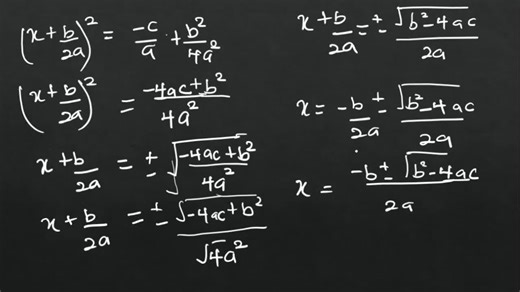 (x + b/2a)² = -c/a + b²/4a²
(x + b/2a)² = (-4ac + b²)/4a²
x + b/2a = ± √((-4ac + b²)/4a²)
x + b/2a = ± √(-4ac + b²)/√(4a²)
x + b/2a = ± √(b² - 4ac)/2a
x = -b/2a ± √(b² - 4ac)/2a
x = (-b ± √(b² - 4ac))/2a